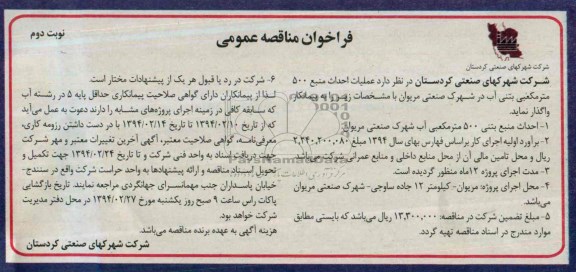 نوبت دوم
فراخوان مناقصه عمومی
شرکت شهرکهای صنعتی کردستان
شرکت شهرکهای صنعتی کردستان در نظر دارد عملیات احداث منبع ۵۰۰
مترمکعبی بتنی آب در شهرک صنعتی مریوان با مشخصات زیر را به پیمانکار
واگذار نماید.
۱- احداث منبع بتنی ۵۰۰ مترمکعبی آب شهرک صنعتی مریوان
۲- برآورد اولیه اجرای کار براساس فهارس بهای سال ۱۳۹۴ مبلغ ۲,۲۴۰,۲۰۰,۰۸۰
ریال و محل تامین مالی آن از محل منابع داخلی و منابع عمرانی شرکت می باشد.
۳- مدت اجرای پروژه ۱۲ماه منظور گردیده است.
۴- محل اجرای پروژه: مریوان- کیلومتر ۱۲ جاده ساوجی- شهرک صنعتی مریوان
می‌باشد.
۵- مبلغ تضمین شرکت در مناقصه: ۱۳,۳۰۰,۰۰۰ ریال می‌باشد که بایستی مطابق
موارد مندرج در اسناد مناقصه تهیه گردد.
۶- شرکت در رد یا قبول هر یک از پیشنهادات مختار است.
لذا از پیمانکاران دارای گواهی صلاحیت پیمانکاری حداقل پایه ۵ در رشته آب
که سابقه کافی در زمینه اجرای پروژه‌های مشابه را دارند دعوت به عمل می‌آید
که از تاریخ ۱۳۹۴/۰۲/۱۰ تا تاریخ ۱۳۹۴/۰۲/۱۴ با در دست داشتن رزومه کاری،
معرفی‌نامه، گواهی صلاحیت معتبر، آگهی آخرین تغییرات معتبر و مهر شرکت
جهت دریافت اسناد به واحد فنی شرکت و تا تاریخ ۱۳۹۴/۰۲/۲۴ جهت تکمیل و
تحویل اسناد مناقصه و ارائه پیشنهادها به واحد حراست شرکت واقع در سنندج-
خیابان پاسداران جنب مهمانسرای جهانگردی مراجعه نمایند. تاریخ بازگشایی
پاکات راس ساعت ۹ صبح روز یکشنبه مورخ ۱۳۹۴/۰۲/۲۷ در محل دفتر مدیریت
شرکت خواهد بود.
هزینه آگهی به عهده برنده مناقصه می‌باشد.
شرکت شهرکهای صنعتی کردستان